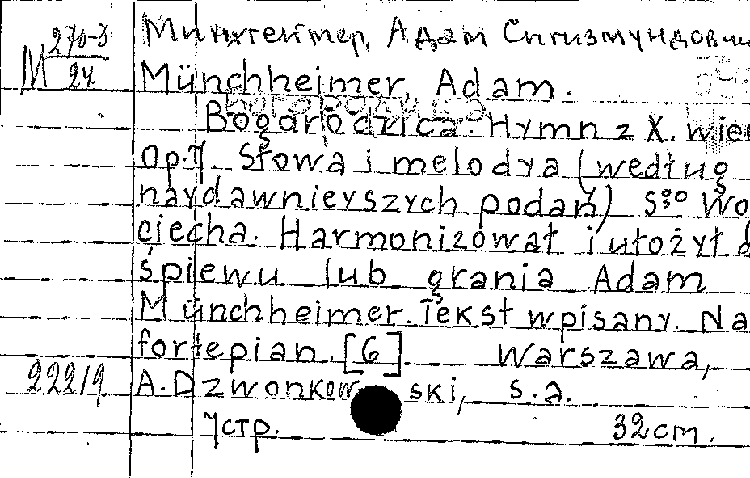 М 270-3/24
Минхгеймер, Адам Сигизмундович
Münchheimer, Adam.
Bogarodzica. Hymn z X. wie
Op.7. Słowa i melodya (według
naydawnieyszych podań) Sgo Wo
ciecha. Harmonizował i ułożył d
śpiewu lub grania Adam
Münchheimer. Tekst wpisany. Na
fortepian. [6]. Warszawa,
222/9 A. Dzwonkowski, s.a.
7стр. 32cm.